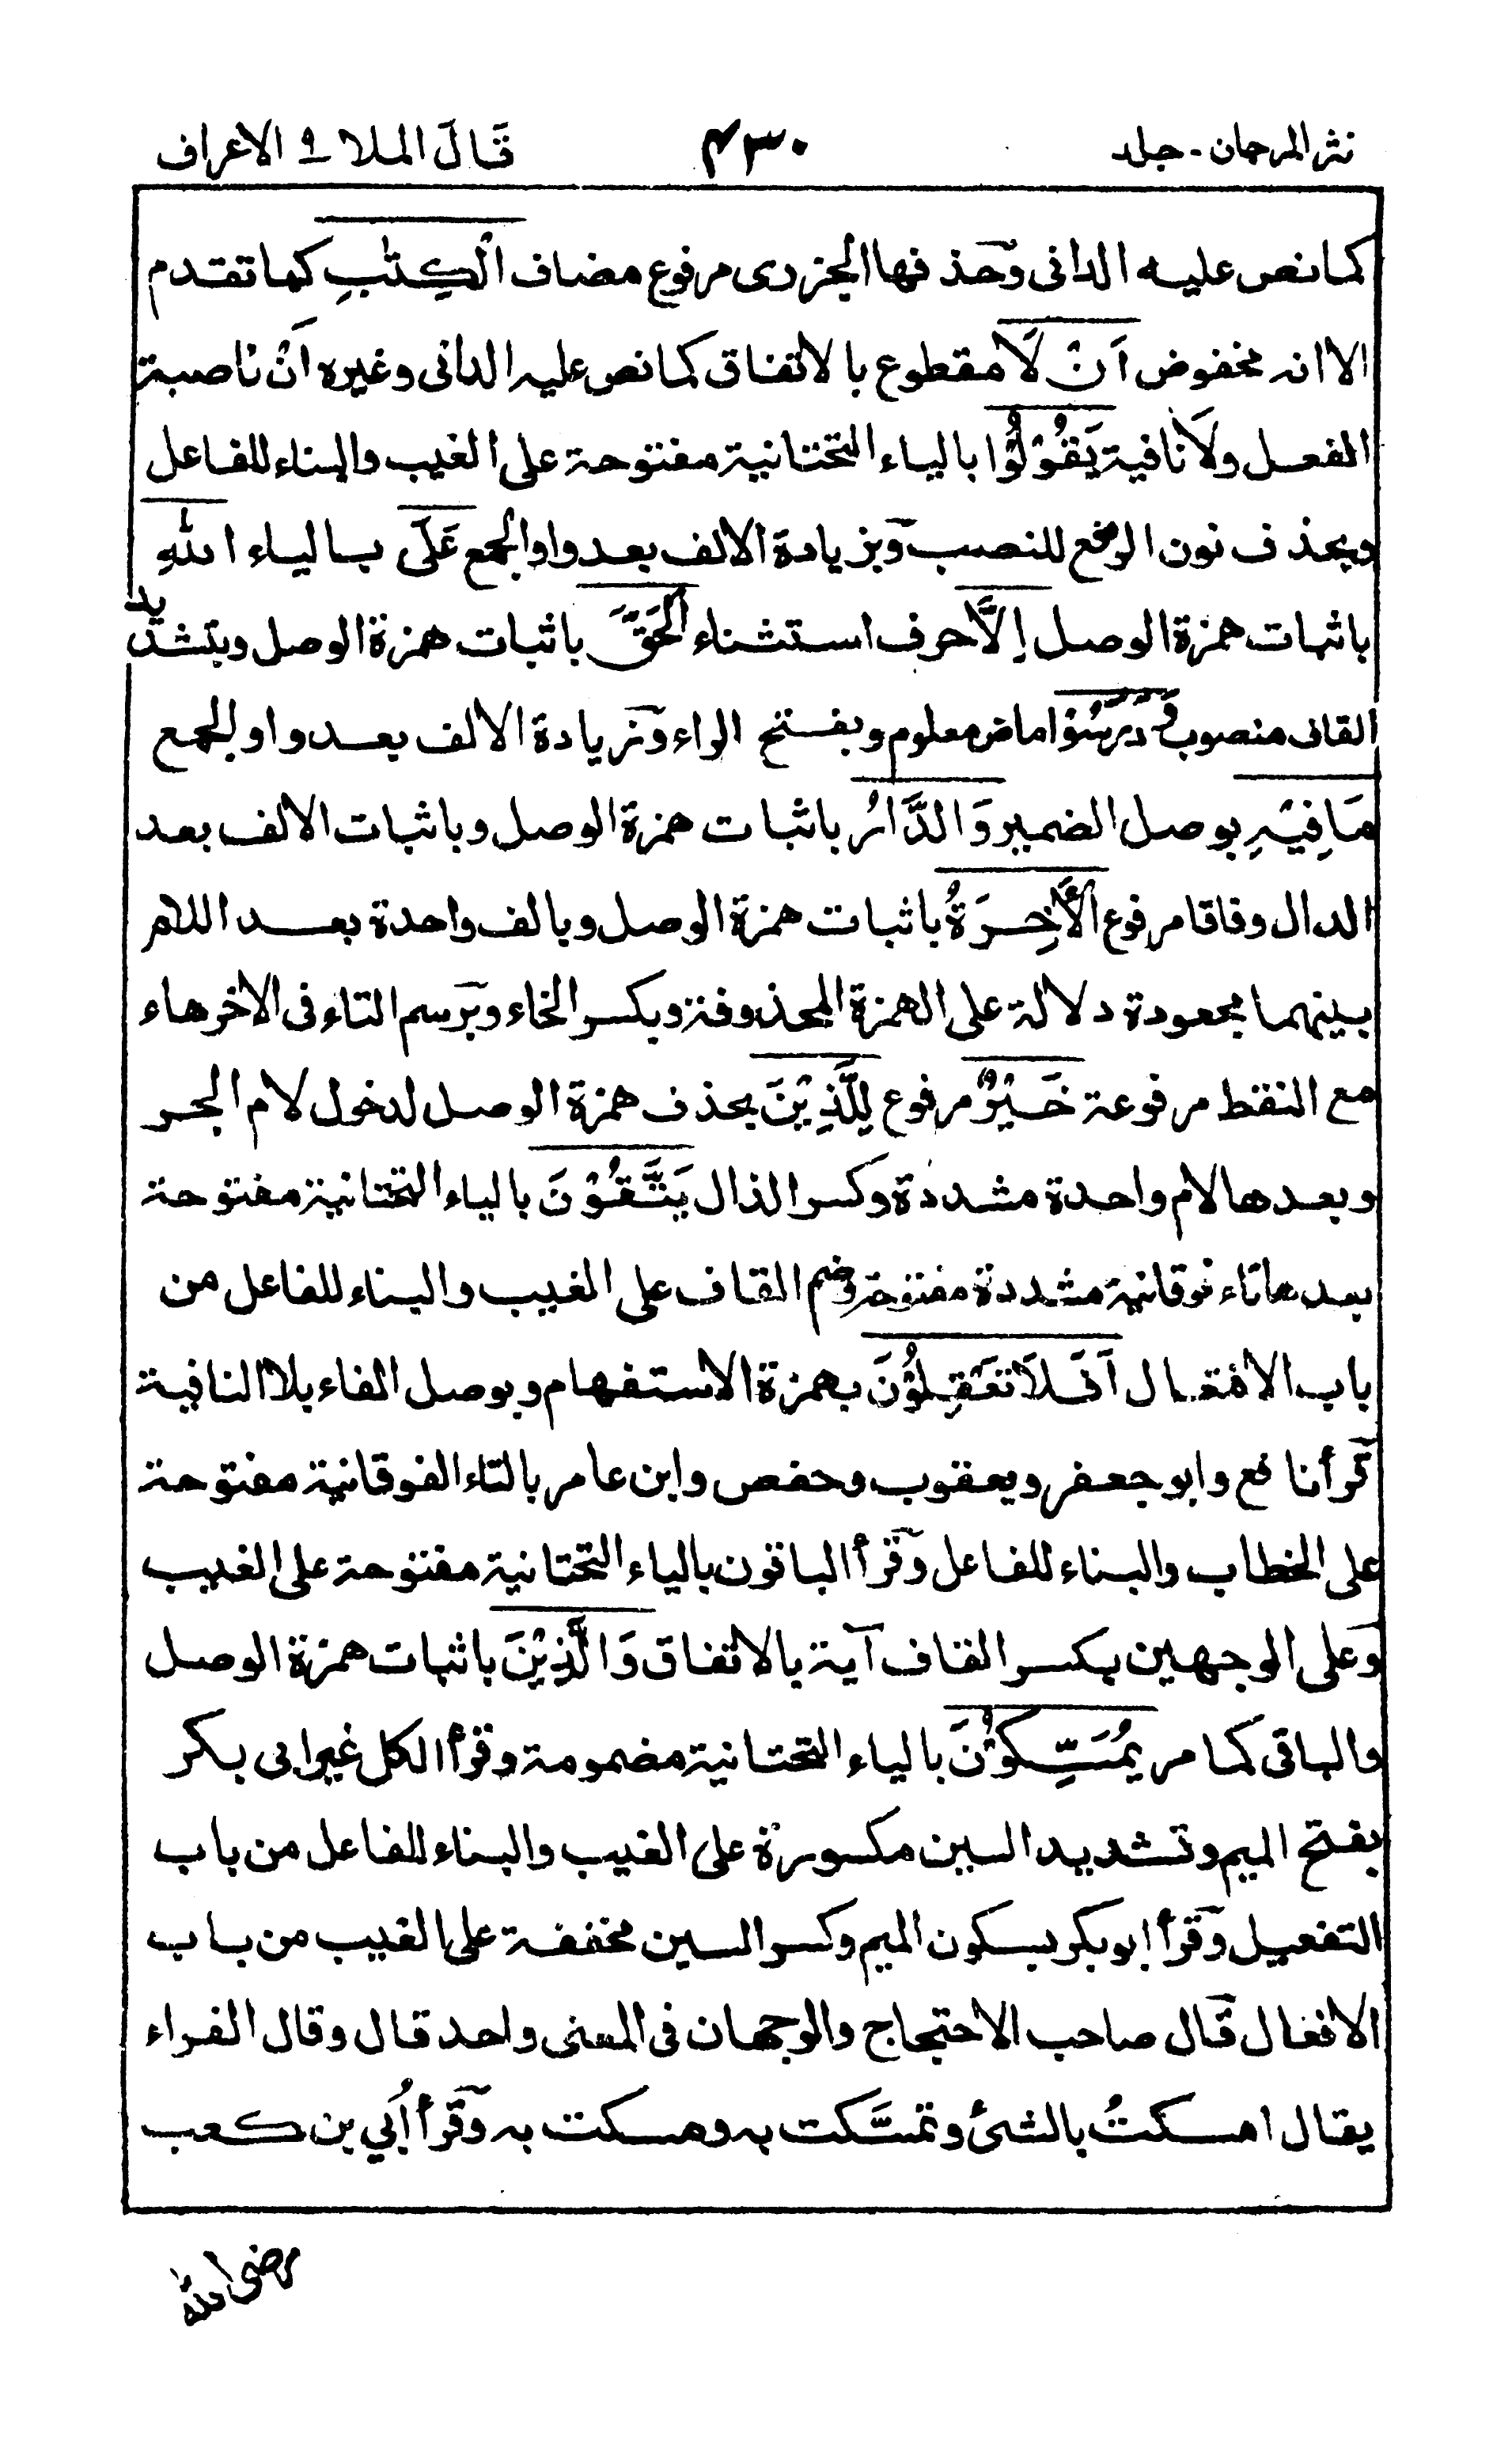 نثر المرجان - جلد ۴۳۰ قَالَ الملا ۹ الاعراف
كما نص عليه الدانى وحذفها الجزرى مرفوع مضاف الْكِتٰبِ كما تقدم
الا انه مخفوض اَنْ لَا مقطوع بالاتفاق كما نص عليه الدانى وغيره اَنْ ناصبة
الفعل ولَا نافية يَقُوْلُوْا بالياء التحتانية مفتوحة على الغيب والبناء للفاعل
وبحذف نون الرفع للنصب وبزيادة الالف بعد واو الجمع عَلَى بالياء اللّٰهِ
باثبات همزة الوصل اِلَّا حرف استثناء الْحَقَّ باثبات همزة الوصل وبتشديد
القاف منصوب وَدَرَسُوْا ماض معلوم وبفتح الراء وبزيادة الالف بعد واو الجمع
مَا فِيْهِ بوصل الضمير وَالدَّارُ باثبات همزة الوصل وباثبات الالف بعد
الدال وفاقا مرفوع الْأَخِرَةُ باثبات همزة الوصل وبالف واحدة بعد اللام
بينهما مجعودة دلالة على الهمزة المحذوفة وبكسر الخاء وبرسم التاء فى الاخر هاء
مع النقط مرفوعة خَيْرٌ مرفوع لِلَّذِيْنَ بحذف همزة الوصل لدخول لام الجر
وبعدها لام واحدة مشددة وكسر الذال يَتَّقُوْنَ بالياء التحتانية مفتوحة
بعدها تاء فوقانية مشددة مفتوحة وضم القاف على الغيب والبناء للفاعل من
باب الافتعال اَفَلَا تَعْقِلُوْنَ بهمزة الاستفهام وبوصل الفاء بلا النافية
قرأ نافع وابو جعفر ويعقوب وحفص وابن عامر بالتاء الفوقانية مفتوحة
على الخطاب والبناء للفاعل وقرأ الباقون بالياء التحتانية مفتوحة على الغيب
وعلى الوجهين بكسر القاف آية بالاتفاق وَالَّذِيْنَ باثبات همزة الوصل
والباقى كما مر يُمَسِّكُوْنَ بالياء التحتانية مضمومة وقرأ الكل غير ابى بكر
بفتح الميم وتشديد السين مكسورة على الغيب والبناء للفاعل من باب
التفعيل وقرأ ابو بكر بسكون الميم وكسر السين مخففة على الغيب من باب
الافعال قال صاحب الاحتجاج والوجهان فى المعنى واحد قال وقال الفراء
يقال امسكتُ بالشئ وتمسَّكت به ومسكت به وقرأ اُبي بن كعب
رضى الله